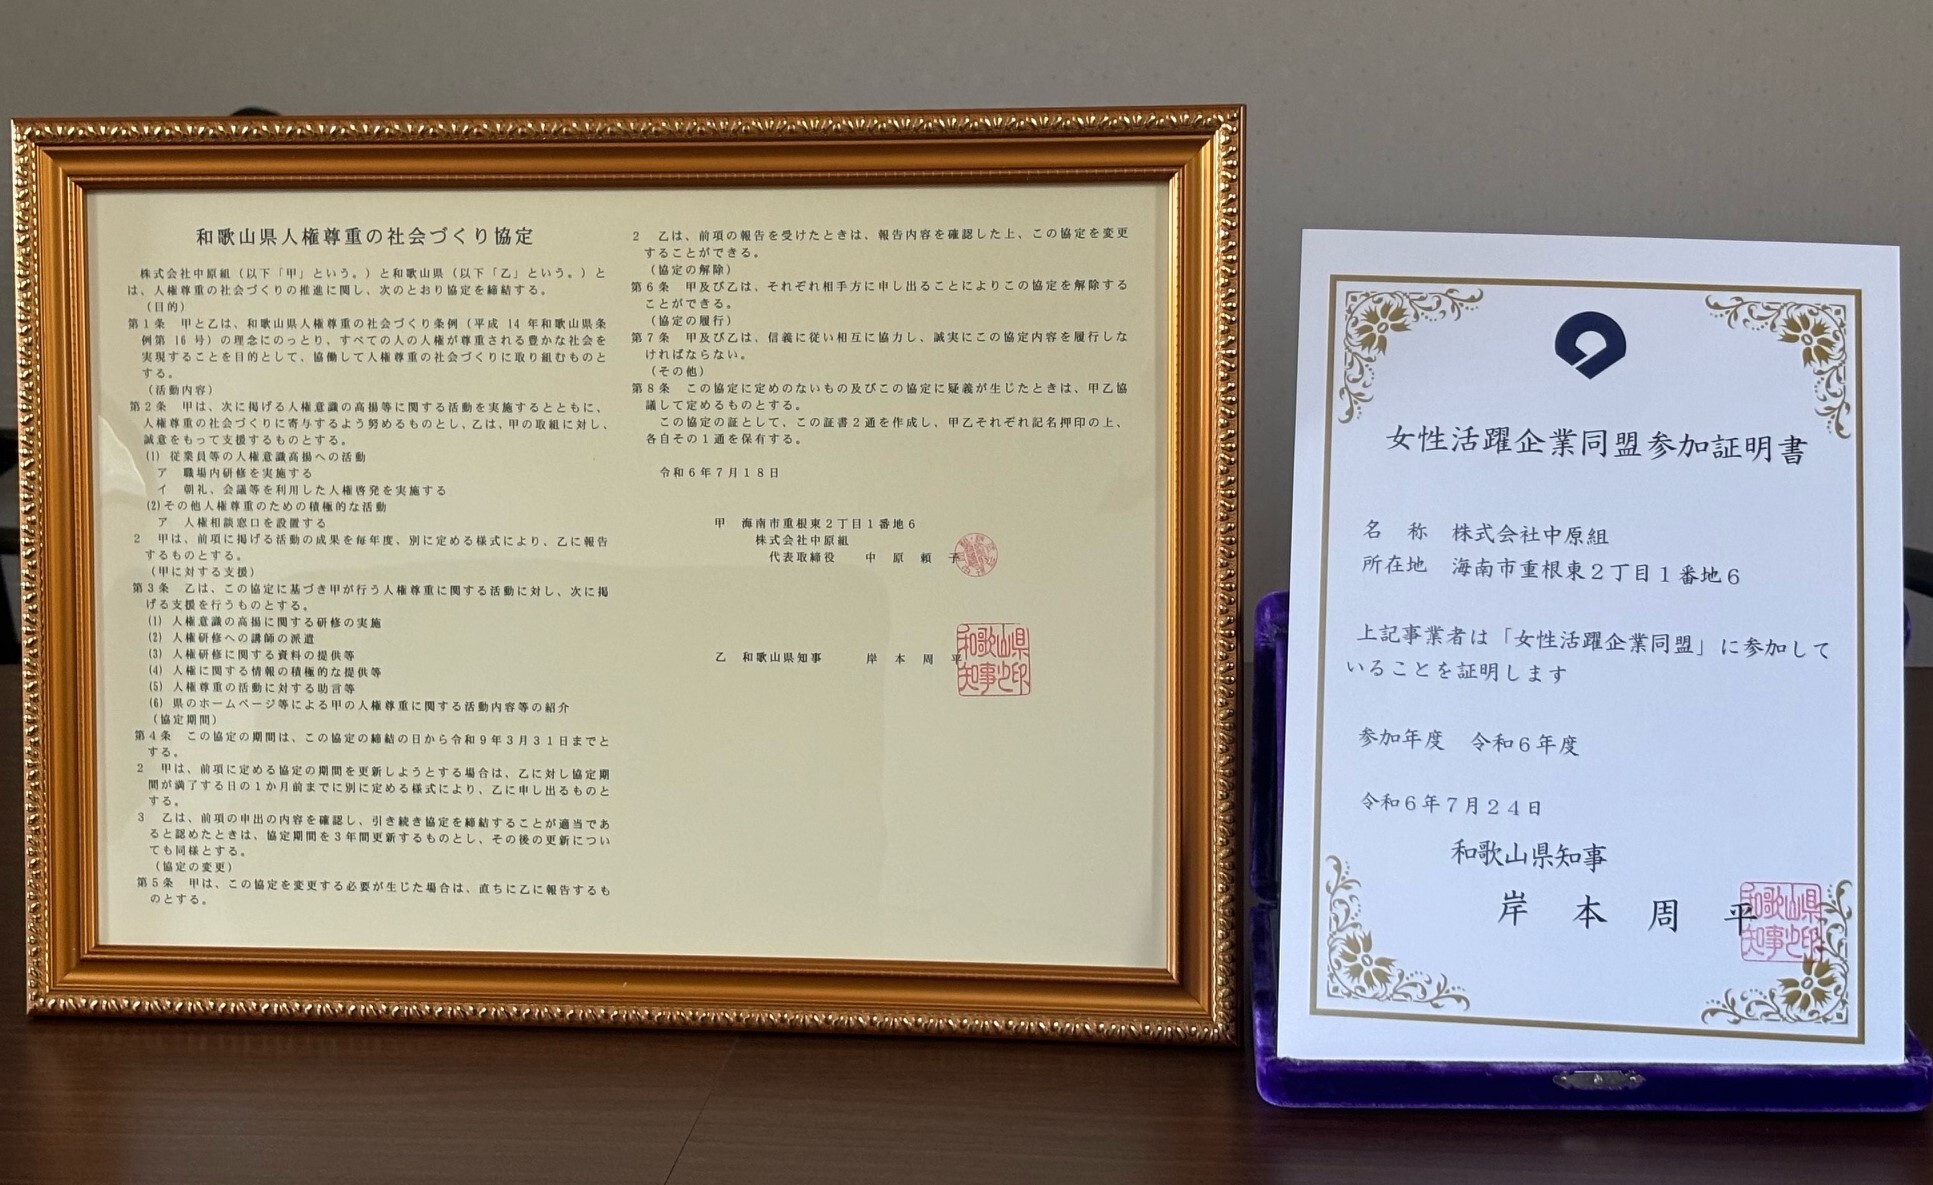 和歌山県人権尊重の社会づくり協定
株式会社中原組（以下「甲」という。）と和歌山県（以下「乙」という。）と
は、人権尊重の社会づくりの推進に関し、次のとおり協定を締結する。
（目的）
第１条　甲と乙は、和歌山県人権尊重の社会づくり条例（平成 14 年和歌山県条
例第 16 号）の理念にのっとり、すべての人の人権が尊重される豊かな社会を
実現することを目的として、協働して人権尊重の社会づくりに取り組むものと
する。
（活動内容）
第２条　甲は、次に掲げる人権意識の高揚等に関する活動を実施するとともに、
人権尊重の社会づくりに寄与するよう努めるものとし、乙は、甲の取組に対し、
誠意をもって支援するものとする。
(1) 従業員等の人権意識高揚への活動
ア　職場内研修を実施する
イ　朝礼、会議等を利用した人権啓発を実施する
(2)その他人権尊重のための積極的な活動
ア　人権相談窓口を設置する
２　甲は、前項に掲げる活動の成果を毎年度、別に定める様式により、乙に報告
するものとする。
（甲に対する支援）
第３条　乙は、この協定に基づき甲が行う人権尊重に関する活動に対し、次に掲
げる支援を行うものとする。
(1) 人権意識の高揚に関する研修の実施
(2) 人権研修への講師の派遣
(3) 人権研修に関する資料の提供等
(4) 人権に関する情報の積極的な提供等
(5) 人権尊重の活動に対する助言等
(6) 県のホームページ等による甲の人権尊重に関する活動内容等の紹介
（協定期間）
第４条　この協定の期間は、この協定の締結の日から令和９年３月３１日までと
する。
２　甲は、前項に定める協定の期間を更新しようとする場合は、乙に対し協定期
間が満了する日の１か月前までに別に定める様式により、乙に申し出るものと
する。
３　乙は、前項の申出の内容を確認し、引き続き協定を締結することが適当であ
ると認めたときは、協定期間を３年間更新するものとし、その後の更新につい
ても同様とする。
（協定の変更）
第５条　甲は、この協定を変更する必要が生じた場合は、直ちに乙に報告するも
のとする。
２　乙は、前項の報告を受けたときは、報告内容を確認した上、この協定を変更
することができる。
（協定の解除）
第６条　甲及び乙は、それぞれ相手方に申し出ることによりこの協定を解除する
ことができる。
（協定の履行）
第７条　甲及び乙は、信義に従い相互に協力し、誠実にこの協定内容を履行しな
ければならない。
（その他）
第８条　この協定に定めのないもの及びこの協定に疑義が生じたときは、甲乙協
議して定めるものとする。
この協定の証として、この証書２通を作成し、甲乙それぞれ記名押印の上、
各自その１通を保有する。
令和６年７月１８日
甲　海南市重根東２丁目１番地６
株式会社中原組
代表取締役　中　原　頼　子
乙　和歌山県知事　岸　本　周　平
和歌山県
知事之印
女性活躍企業同盟参加証明書
名　称　株式会社中原組
所在地　海南市重根東２丁目１番地６
上記事業者は「女性活躍企業同盟」に参加して
いることを証明します
参加年度　令和６年度
令和６年７月２４日
和歌山県知事
岸　本　周　平
和歌山県
知事之印